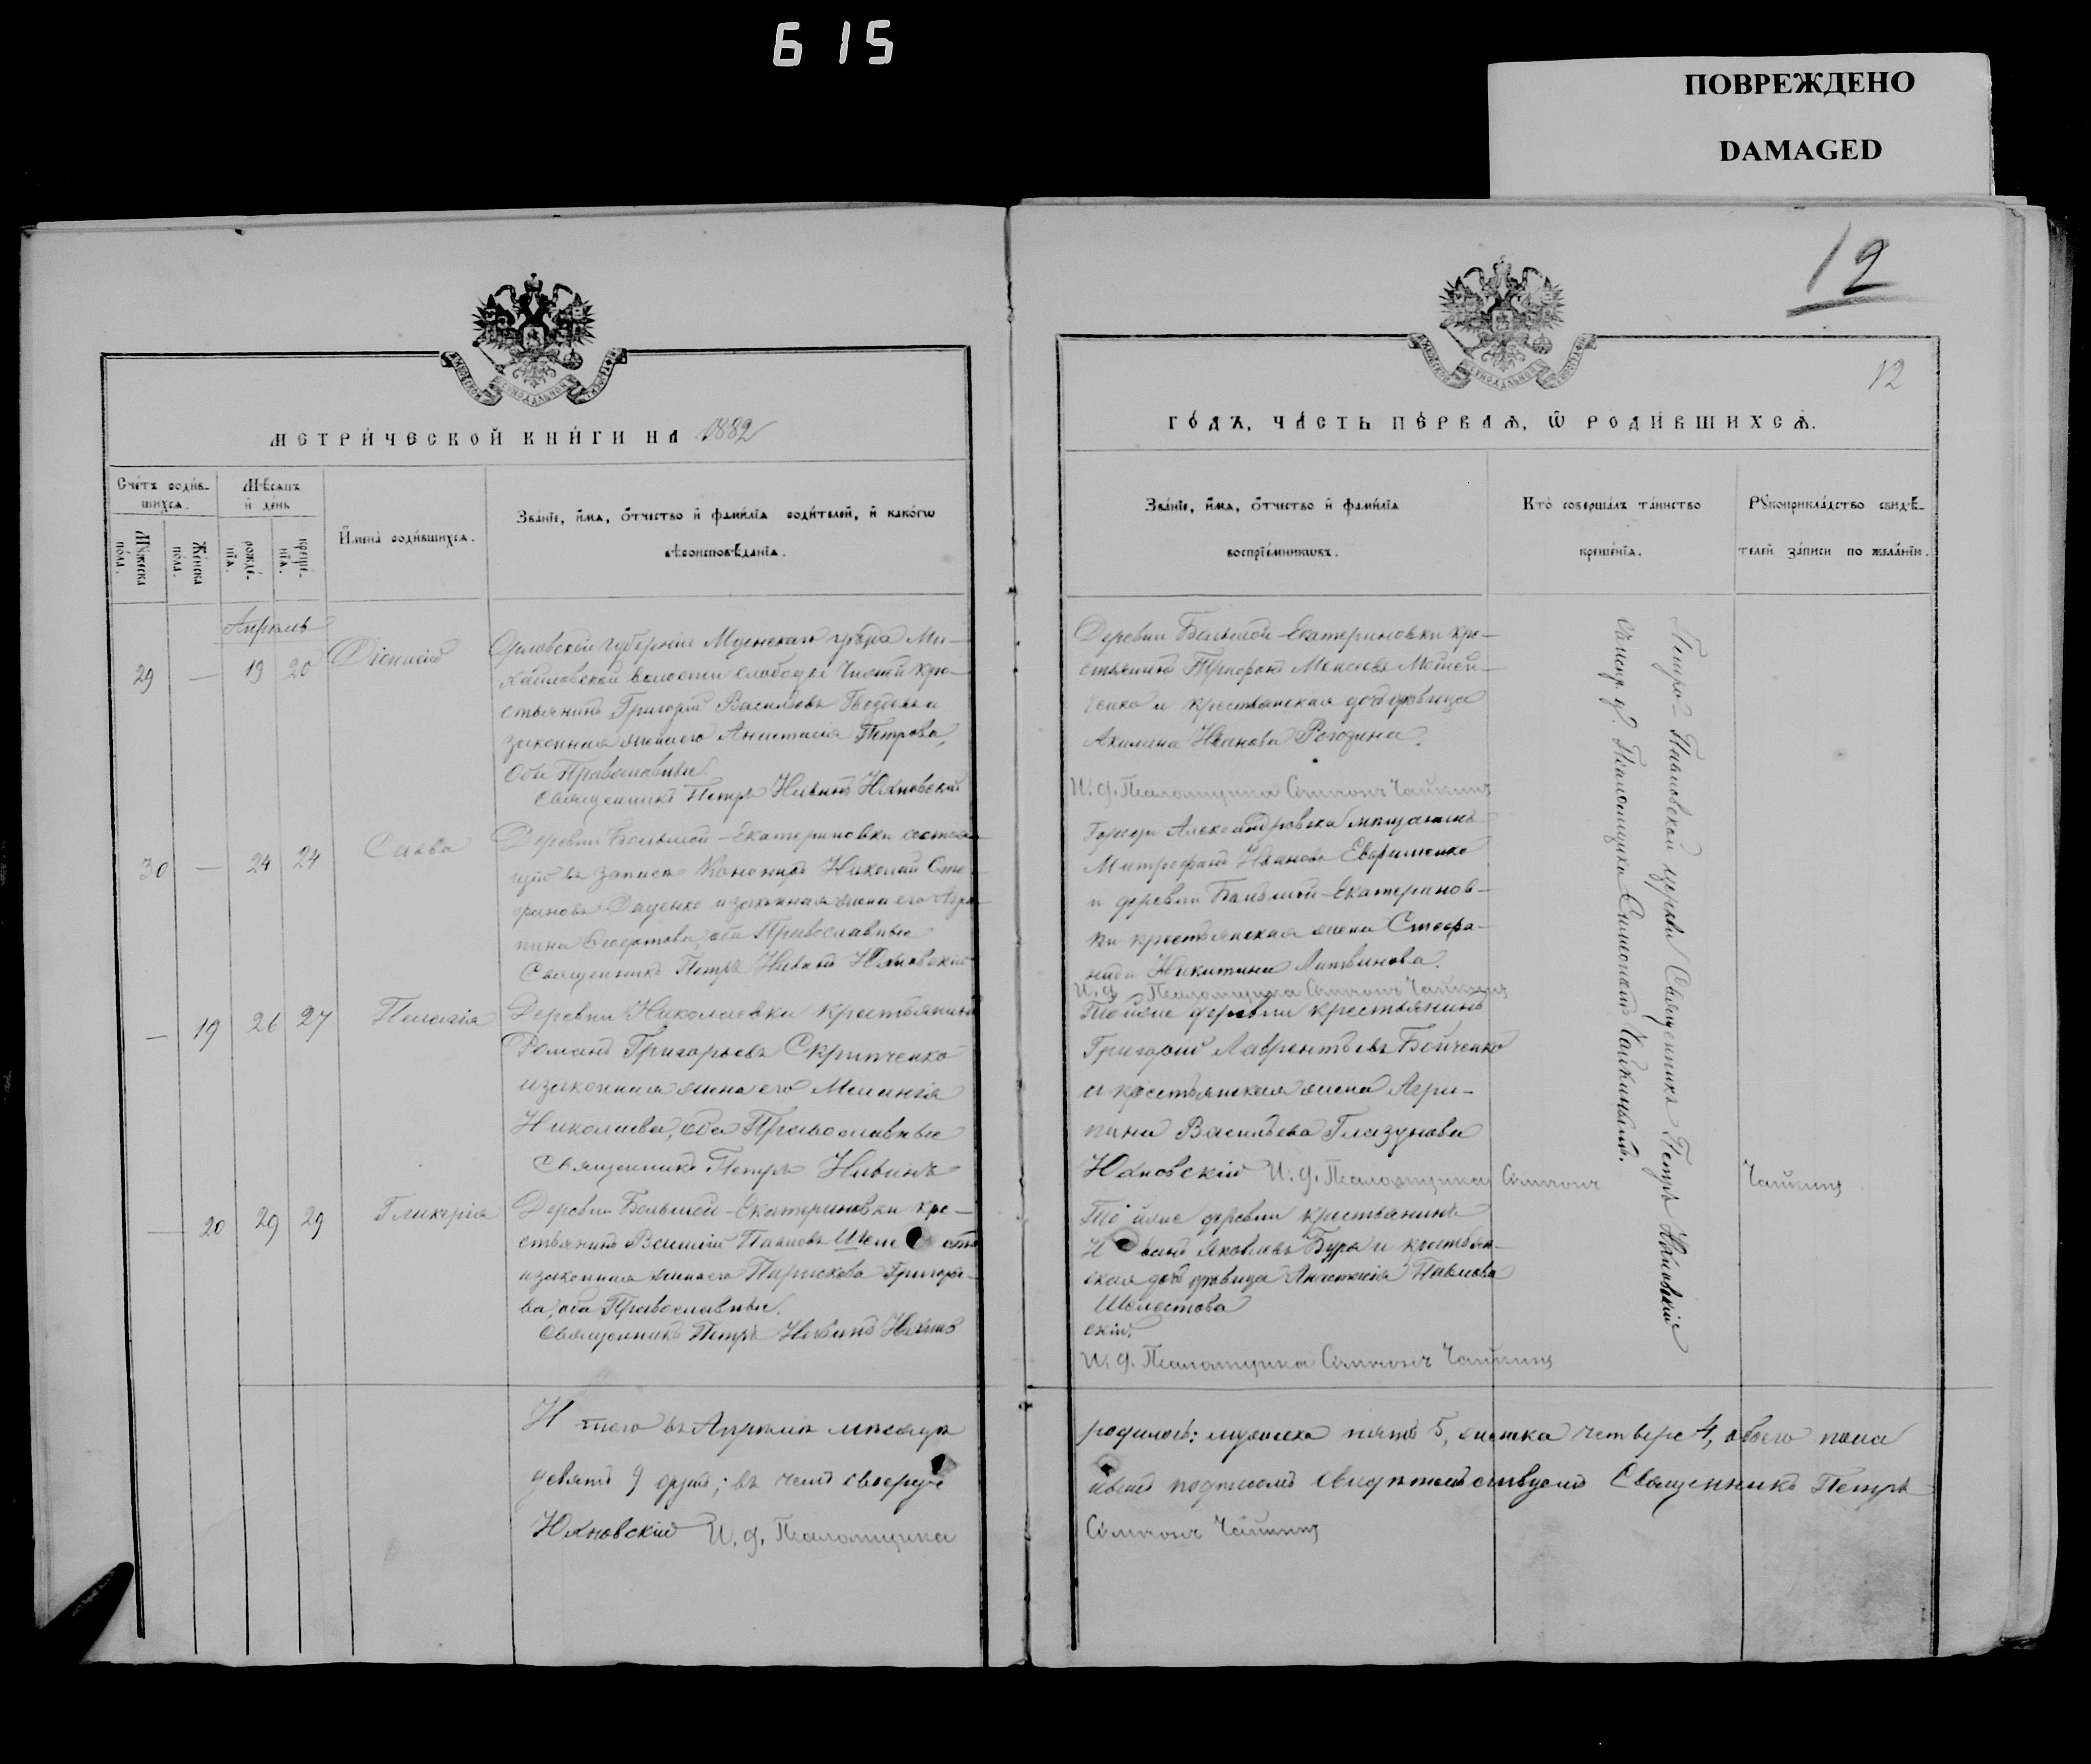 615
ПОВРЕЖДЕНО
DAMAGED
12
12
МЕТРИ́ЧЕСКОЙ КНИ́ГИ НА 1882
ГО́ДЪ, ЧА́СТЬ ПЕ́РВАѦ, Ѿ РОДИ́ВШИХСѦ.
Сче́тъ роди́в-
шихсѧ.
Мꙋ́жеска по́ла.
Же́нска по́ла.
Мѣ́сѧцъ
и҆ де́нь
рожде́-нїѧ.
креще́-нїѧ.
И҆мена̀ роди́вшихсѧ.
Зва́нїе, и҆́мѧ, ѻ҆́тчество и҆ фами́лїѧ роди́телей, и҆ како́гѡ
вѣроисповѣ́данїѧ.
Зва́нїе, и҆́мѧ, ѻ҆́тчество и҆ фами́лїѧ
воспрїе́мникѡвъ.
Кто̀ соверша́лъ та́инство
креще́нїѧ.
Рꙋкоприкла́дство свидѣ́-
телей за́писи по жела́нїю.
Апрѣль
29 — 19 20 Діонисій
Орловской губерніи Мценскаго уѣзда Ми-
хайловской волости слободы Чистой кре-
стьянинъ Григорій Васильевъ Гвоздевъ и
законная жена его Анастасія Петрова,
оба Православные.
Священникъ Петръ Юхновскій
Деревни Большой-Екатериновки кре-
стьянинъ Трифонъ Моисеевъ Мойсей-
ченко и крестьянская дочь дѣвица
Акилина Иванова Рогозина.
И. д. Псаломщика Симеонъ Чайкинъ
30 — 24 24 Савва
Деревни Большой-Екатериновки состоя-
щій въ запасѣ Канониръ Николай
Даценко и законная жена его Агри-
пина оба Православные
Священникъ Петръ Юхновскій
Города Александровска мѣщанинъ
Митрофанъ Ивановъ Евфименко
и деревни Большой-Екатеринов-
ки крестьянская жена Стефа-
нида Никитина Литвинова.
И. д. Псаломщика Симеонъ Чайкинъ
— 19 26 27 Пелагія
Деревни Николаевки крестьянинъ
Романъ Григорьевъ Скрипченко
и законная жена его Меланія
Николаева, оба Православные
Священникъ Петръ
Той же деревни крестьянинъ
Григорій Лаврентьевъ Бойченко
и крестьянская жена Агри-
пина Васильева Глазунова
Юхновскій И. д. Псаломщика Симеонъ Чайкинъ
— 20 29 29 Гликерія
Деревни Большой-Екатериновки кре-
стьянинъ Василій Павловъ Шеле стъ
и законная жена его Параскева Григорье-
ва, оба Православные.
Священникъ Петръ Юхнов
Той же деревни крестьянинъ
И ванъ Яковлевъ Бура и крестьян-
ская дочь дѣвица Анастасія Павлова
Шелестова
скій.
И. д. Псаломщика Симеонъ Чайкинъ
Петро-Павловской церкви Священникъ Петръ Юхновскій
с испр. д. Псаломщика Симеономъ Чайкинымъ.
И того въ Апрѣлѣ мѣсяцѣ
родилось: мужеска пять 5, женска четверо 4, обоего пола
девять 9 душъ; въ чемъ своеруч
нымъ подписомъ свидѣтельствуемъ Священникъ Петръ
Юхновскій И. д. Псаломщика
Симеонъ Чайкинъ